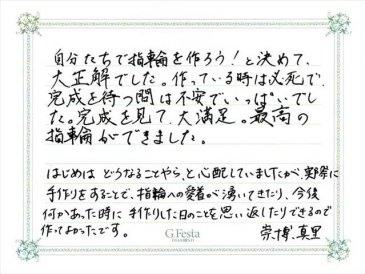 自分たちで指輪を作ろう!と決めて、
大正解でした。作っている時は必死で、
完成を待つ間は不安でいっぱいでし
た。完成を見て、大満足。最高の
指輪ができました。
はじめは どうなることやら、と心配していましたが、実際に
手作りをすることで、指輪への愛着が湧いてきたり、今後
何かあった時に 手作りした日のことを思い返したりできるので
作ってよかったです。
崇博、真里
G.Festa